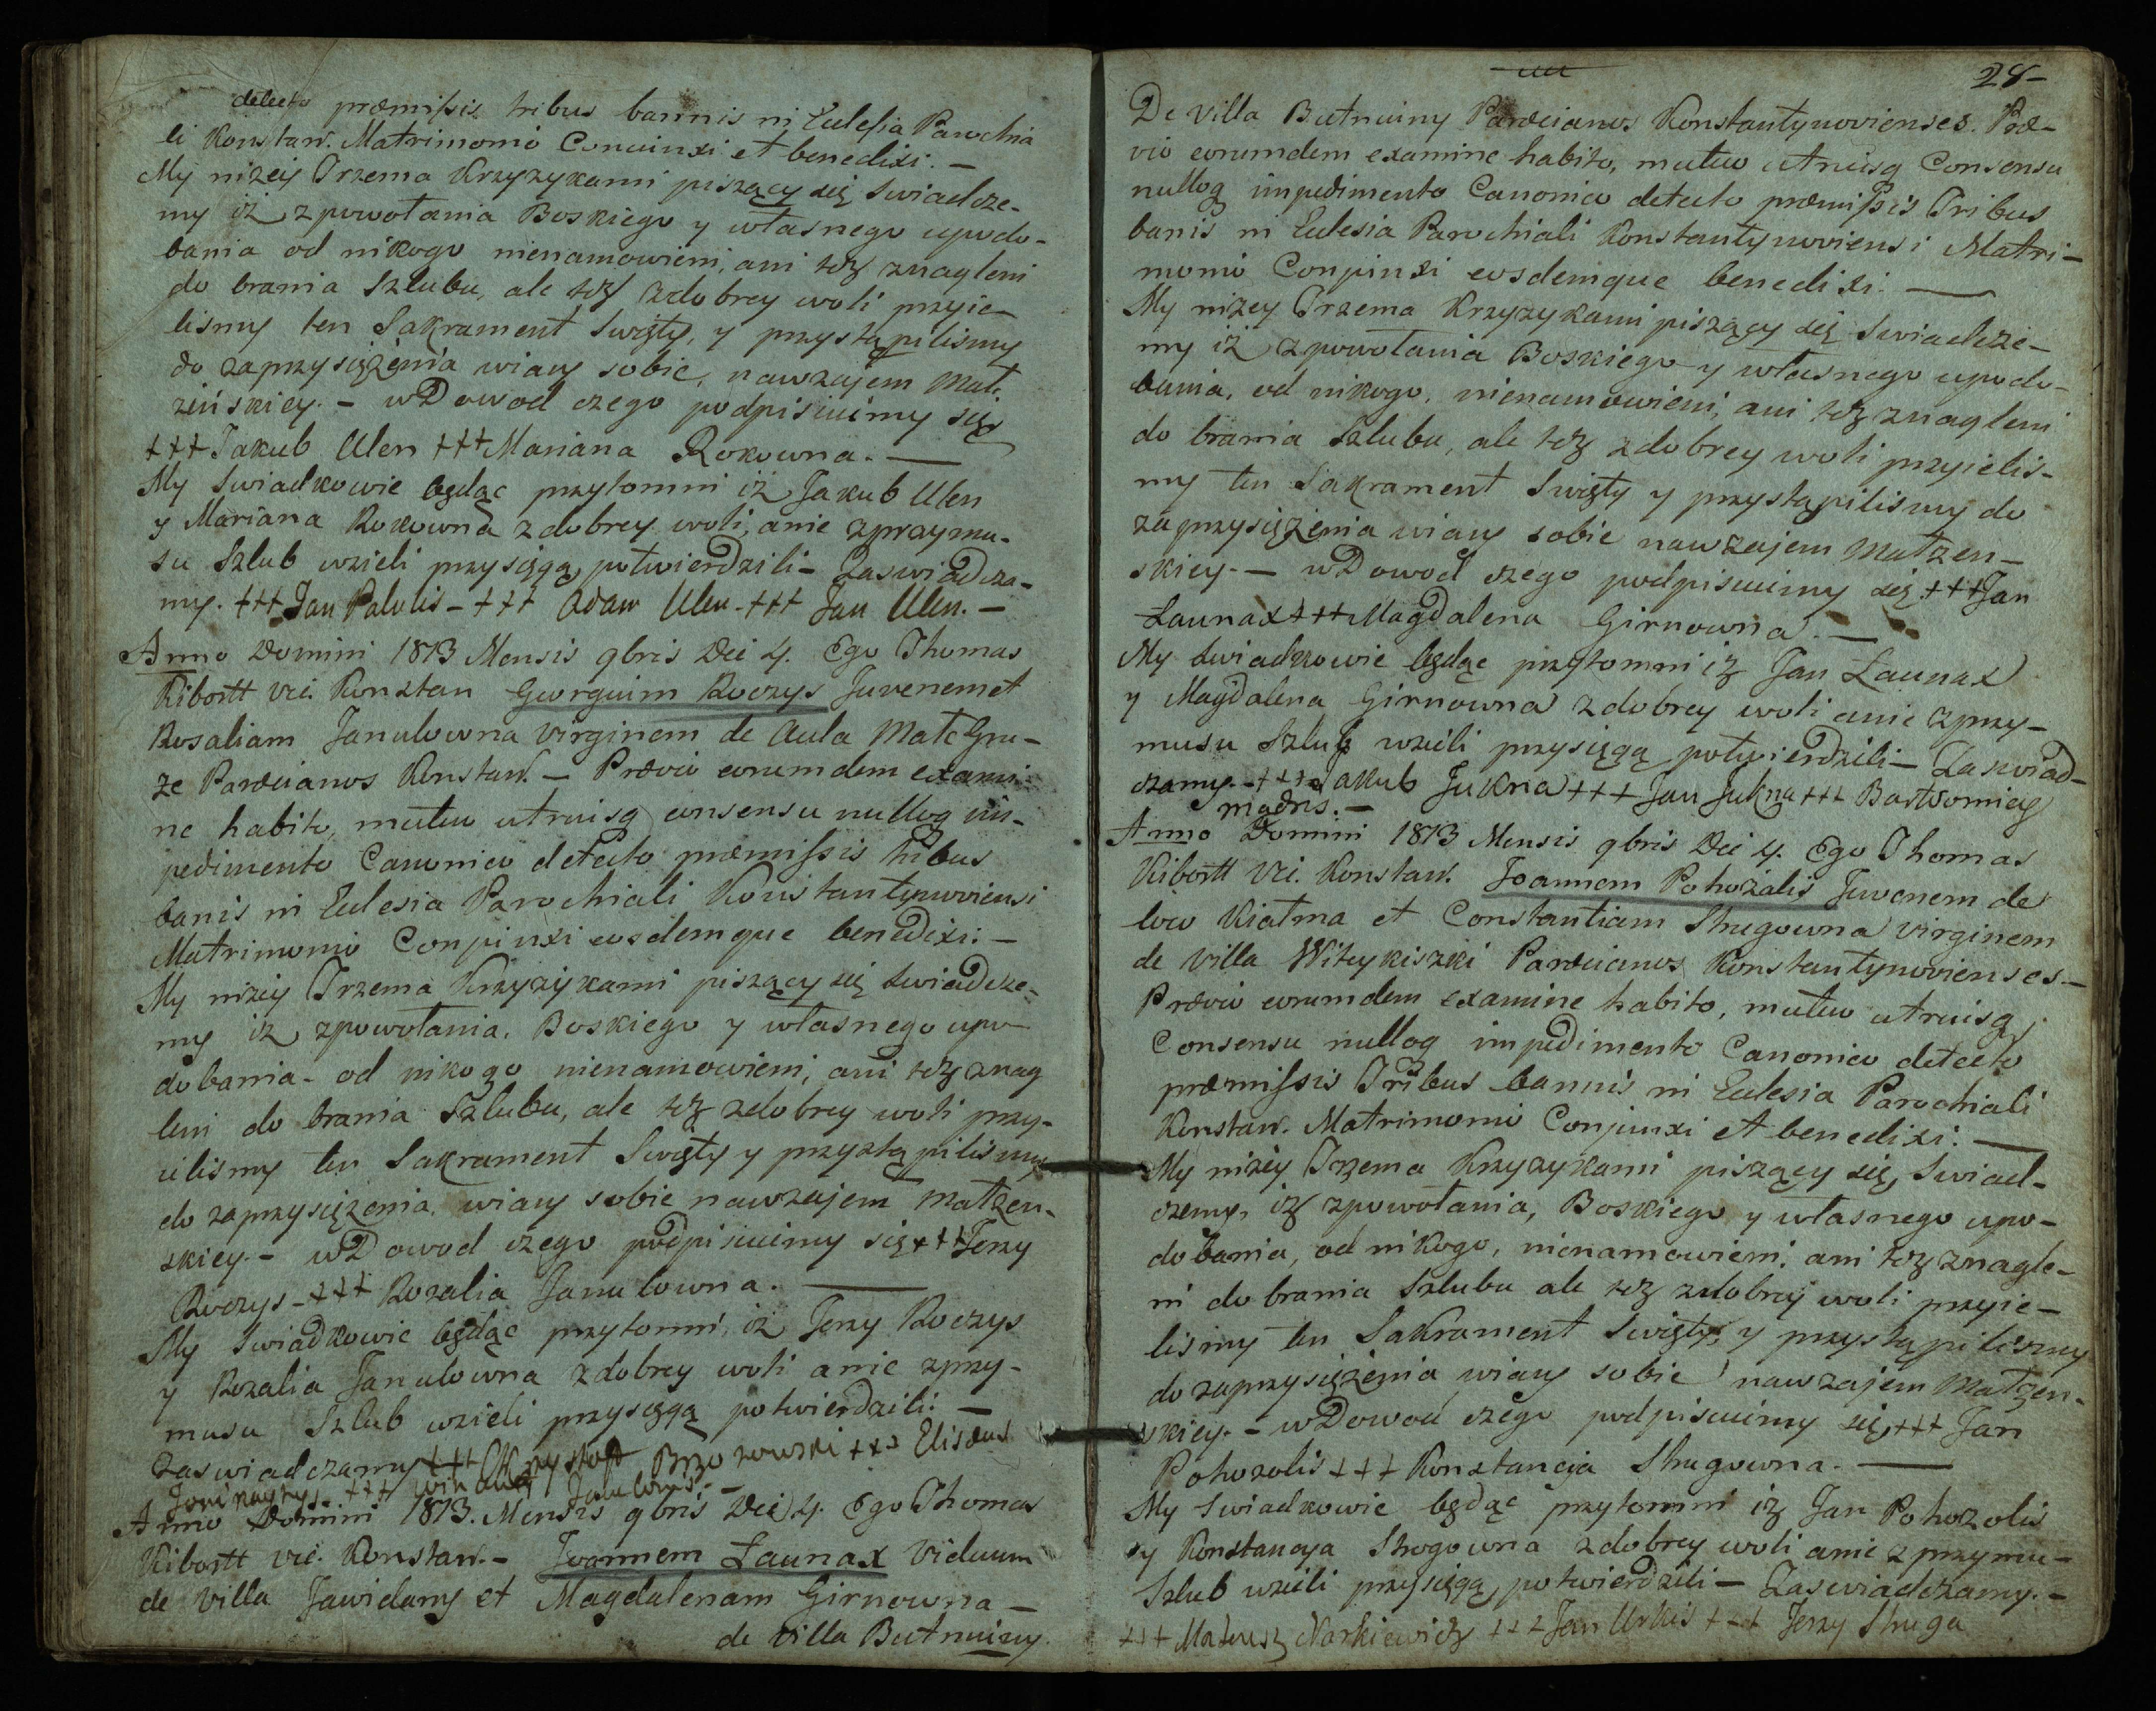 detecto præmissis tribus bannis in Eclesia Parochia
li Konstan. Matrimonio Conuinxi et benedixi. —
My niżey Trzema Krzyzykami piszący się swiadcze-
my iż zpowołania Boskiego y własnego upodo-
bania od nikogo nienamowieni, ani też znagleni
do brania Szlubu, ale też zdobrey woli przyie-
lismy ten Sakrament Swięty, y przystąpilismy
do zaprzysiężenia wiary sobie, nawzajem Mał.
zeńskiey. — wDowod czego podpisuiemy się
+++ Jakub Ulen +++ Mariana Rokowna. —
My Swiadkowie będąc przytomni iż Jakub Ulen
y Mariana Rokowna zdobrey woli, anie zprzymu-
su Szlub wzieli przysięgą potwierdzili — Zaswiadcza-
my. +++ Jan Palulis — +++ Adam Ulen — +++ Jan Ulen. —
Anno Domini 1813 Mensis 9bris Dei 4. Ego Thomas
Kibortt vic. Konstan Georgium Roczys Juvenem et
Rosaliam Janulowna virginem de Aula Małe Gru-
ze Parœcianos Konstan. — Prævio eorumdem exami-
ne habito, mutuo utriusq consensu nulloq im-
pedimento Canonico detecto præmissis tribus
banis in Eclesia Parochiali Konstantynoviensi
Matrimonio Conpinxi eosdemque benedixi. —
My niżey Trzema Krzyzykami piszący się swiadcze-
my iż zpowołania, Boskiego y własnego upo-
dobania — od nikogo nienamowieni, ani też znag
leni do brania Szlubu, ale też zdobrey woli przy-
ielismy ten Sakrament Swięty y przystąpilismy
do zaprzysiężenia, wiary sobie nawzajem Małżen-
skiey. — wDowod czego podpisuiemy się +++ Jerzy
Roczys — +++ Rozalia Janulowna. —
My Swiadkowie będąc przytomni, iż Jerzy Roczys
y Rozalia Janulowna zdobrey woli anie zprzy-
musu Szlub wzieli przysięgą potwierdzili. —
Zaswiadczamy +++ Krzysztoff Brzozowski +++ Elisæus
+++ Janulewis. —
Anno Domini 1813. Mensis 9bris Dei 4. Ego Thomas
Kibortt vic. Konstan. — Joannem Launax Viduum
de Villa Jawidany et Magdalenam Girnowna —
de Villa Butnuiny.
28 —
De Villa Butnuiny Parœcianos Konstantynovienses. Præ-
vio eorumdem examine habito, mutuo utriusq Consensu
nulloq impedimento Canonico detecto præmissis Tribus
banis in Eclesia Parochiali Konstantynoviensi Matri-
monio Conpinxi eosdemque benedixi. —
My niżey Trzema Krzyzykami piszący się swiadcze-
my iż zpowołania Boskiego y własnego upodo-
bania, od nikogo, nienamowieni, ani też znagleni
do brania Szlubu, ale też zdobrey woli przyielis-
my ten Sakrament Swięty y przystąpilismy do
zaprzysiężenia wiary sobie nawzajem Małżen-
skiey. — wDowod czego podpisuiemy się +++ Jan
Launax +++ Magdalena Girnowna. —
My Swiadkowie będąc przytomni iż Jan Launax
y Magdalena Girnowna zdobrey woli anie zprzy-
musu Szlub wzieli przysięgą potwierdzili — Zaswiad-
czamy. — +++ Jakub Jukna +++ Jan Jukna +++ Bartłomiey
mædris. —
Anno Domini 1813 Mensis 9bris Dei 4. Ego Thomas
Kibortt Vic. Konstan. Joannem Pohożalis Juvenem de
loco Kiatma et Constantiam Shugowna virginem
de Villa Witeykiszki Parœcianos Konstantynovienses. —
Prævio eorumdem examine habito, mutuo utriusq
Consensu nulloq impedimento Canonico detecto
præmissis Tribus bannis in Eclesia Parochiali
Konstan. Matrimonio Conjunxi et benedixi. —
My niżey Trzema Krzyzykami piszący się, Swiad-
czemy, iż zpowołania, Boskiego y własnego upo-
dobania, od nikogo, nienamowieni, ani też znagle-
ni do brania Szlubu ale też zdobrey woli przyie-
lismy ten Sakrament Swięty, y przystąpilismy
do zaprzysiężenia wiary sobie nawzajem Małżen-
skiey. — wDowod czego podpisuiemy się +++ Jan
Pohozolis +++ Konstancja Shugowna. —
My Swiadkowie będąc przytomni iż Jan Pohozolis
y Konstancya Shogowna zdobrey woli anie zprzymu-
Szlub wzieli przysięgą, potwierdzili — Zaswiadczamy. —
+++ Mateusz Narkiewicz +++ Jan Urkis +++ Jerzy Shuga